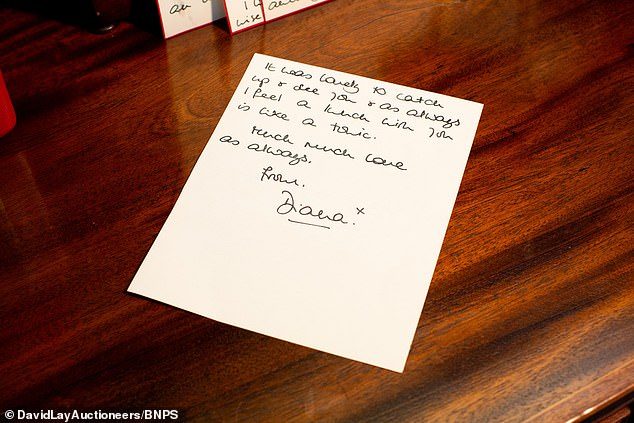 an
I
wise
It was lovely to catch
up & see you & as always
I feel a lunch with you
is like a tonic.
Much much love
as always.
From.
Diana. x
© DavidLayAuctioneers/BNPS